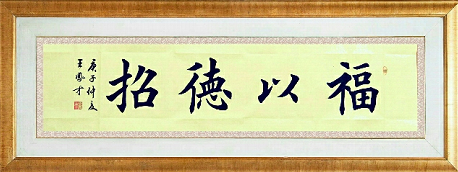 福以德招
庚子仲夏
王鳳才